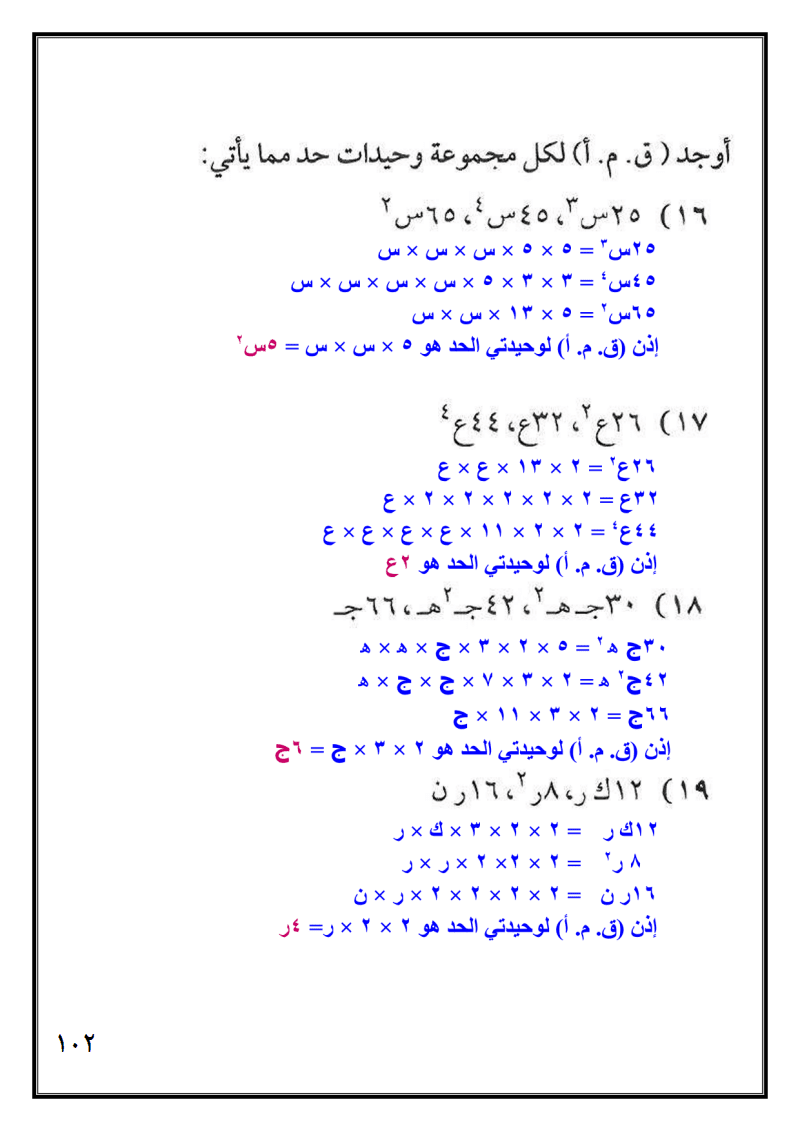 أوجد ( ق. م. أ) لكل مجموعة وحيدات حد مما يأتي:
١٦) ٢٥س٣، ٤٥س٤، ٦٥س٢
٢٥س٣ = ٥ × ٥ × س × س × س
٤٥س٤ = ٣ × ٣ × ٥ × س × س × س × س
٦٥س٢ = ٥ × ١٣ × س × س
إذن (ق. م. أ) لوحيدتي الحد هو ٥ × س × س = ٥س٢
١٧) ٢٦ع٢، ٣٢ع، ٤٤ع٤
٢٦ع٢ = ٢ × ١٣ × ع × ع
٣٢ع = ٢ × ٢ × ٢ × ٢ × ٢ × ع
٤٤ع٤ = ٢ × ٢ × ١١ × ع × ع × ع × ع
إذن (ق. م. أ) لوحيدتي الحد هو ٢ع
١٨) ٣٠جـ هـ٢، ٤٢جـ٢هـ، ٦٦جـ
٣٠ج ه٢ = ٥ × ٢ × ٣ × ج × ه × ه
٤٢ج٢ ه = ٢ × ٣ × ٧ × ج × ج × ه
٦٦ج = ٢ × ٣ × ١١ × ج
إذن (ق. م. أ) لوحيدتي الحد هو ٢ × ٣ × ج = ٦ج
١٩) ١٢ك ر، ٨ر٢، ١٦ر ن
١٢ك ر = ٢ × ٢ × ٣ × ك × ر
٨ ر٢ = ٢ × ٢× ٢ × ر × ر
١٦ر ن = ٢ × ٢ × ٢ × ٢ × ر × ن
إذن (ق. م. أ) لوحيدتي الحد هو ٢ × ٢ × ر= ٤ر
١٠٢